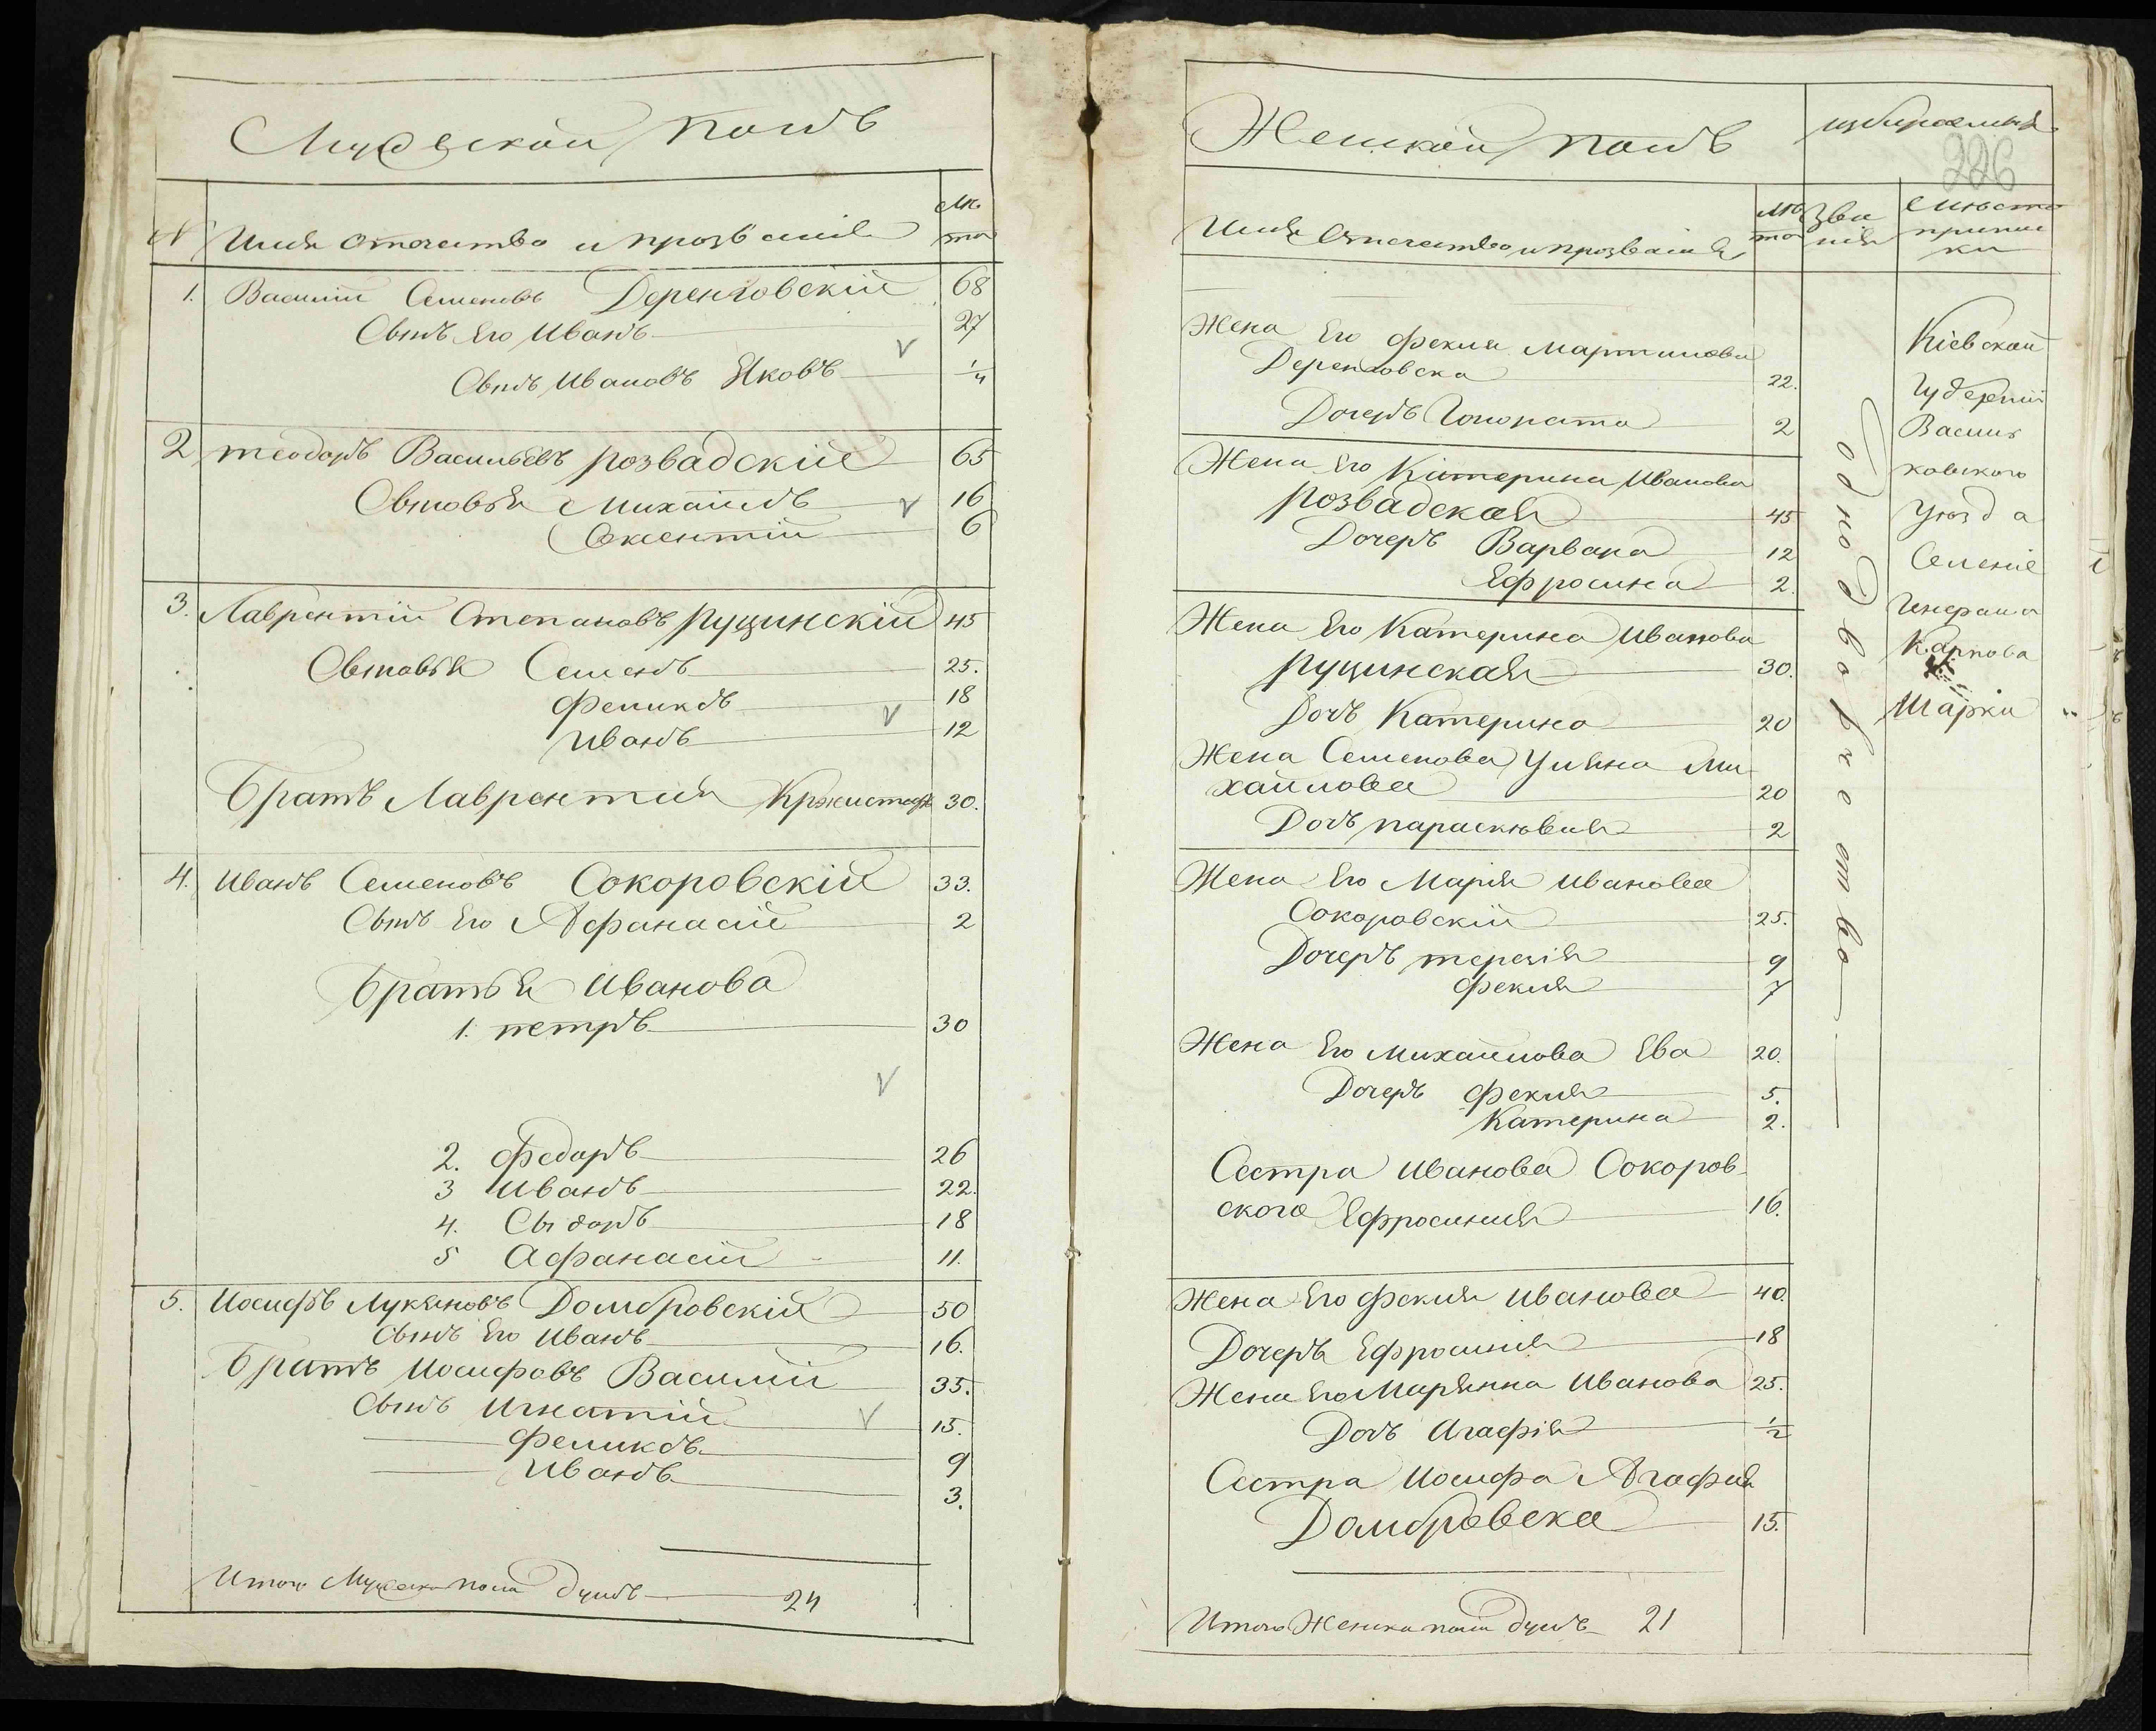 Мужеской полъ
N Имя отечество и прозваніе лѣта
1. Василий Семеновъ Деренговскій 68
Сынъ Его Иванъ 27
Сынъ Ивановъ Яковъ 1/4
2 теодоръ Васильевъ розвадскій 65
Сыновья Михайлъ 16
6
3. Лаврентій Степановъ рущинскій 45
Сыновья Семенъ 25.
Феликсъ 18
Иванъ 12
братъ Лаврентия Кржистофъ 30.
4. Иванъ Семеновъ Сокоровскій 33.
Сынъ Его Афанасій 2
братья Иванова
1. петръ 30
2. Федоръ 26
3 Иванъ 22.
4. Сыдоръ 18
5 Афанасій 11.
5. Иосифъ Лукяновъ Домбровскій 50
Сынъ Его Иванъ 16.
братъ Иосифовъ Василій 35.
Сынъ Игнатій 15.
Феликсъ 9
Иванъ 3.
Итого Мужеска пола душъ 24
Женской полъ
226
Имя Отечество и прозваніе лѣта Званія Мѣсто приписки
Жена Его Фекла Мартинова
Деренговска 22.
Дочеръ Гонората 2
Жена Его Катерина Иванова
розвадская 45
Дочеръ Варвара 12
Ефросина 2.
Жена Его Катерина Иванова
рущинская 30.
Дочъ Катерина 20
Жена Семенова Уляна Ми
хайлова 20
Дочъ параскювия 2
Жена Его Марія Иванова
Сокоровскій 25.
Дочеръ терезія 9
Фекля 7
Жена Его Михайлова Ева 20.
Дочеръ Фекля 5.
Катерина 2.
Сестра Иванова Сокоров
ского Ефросиния 16.
Жена Его Фекля Иванова 40.
Дочеръ Ефросиния 18
Жена Его Марянна Иванова 25.
Дочъ Агафія 1/2
Сестра Иосифа Агафия
Домбровска 15.
Итого Женска пола душъ 21
однодворчество
Кіевской
Губерніи
Василь
ковского
Уюзда
Селеніе
Карпова
Шарки